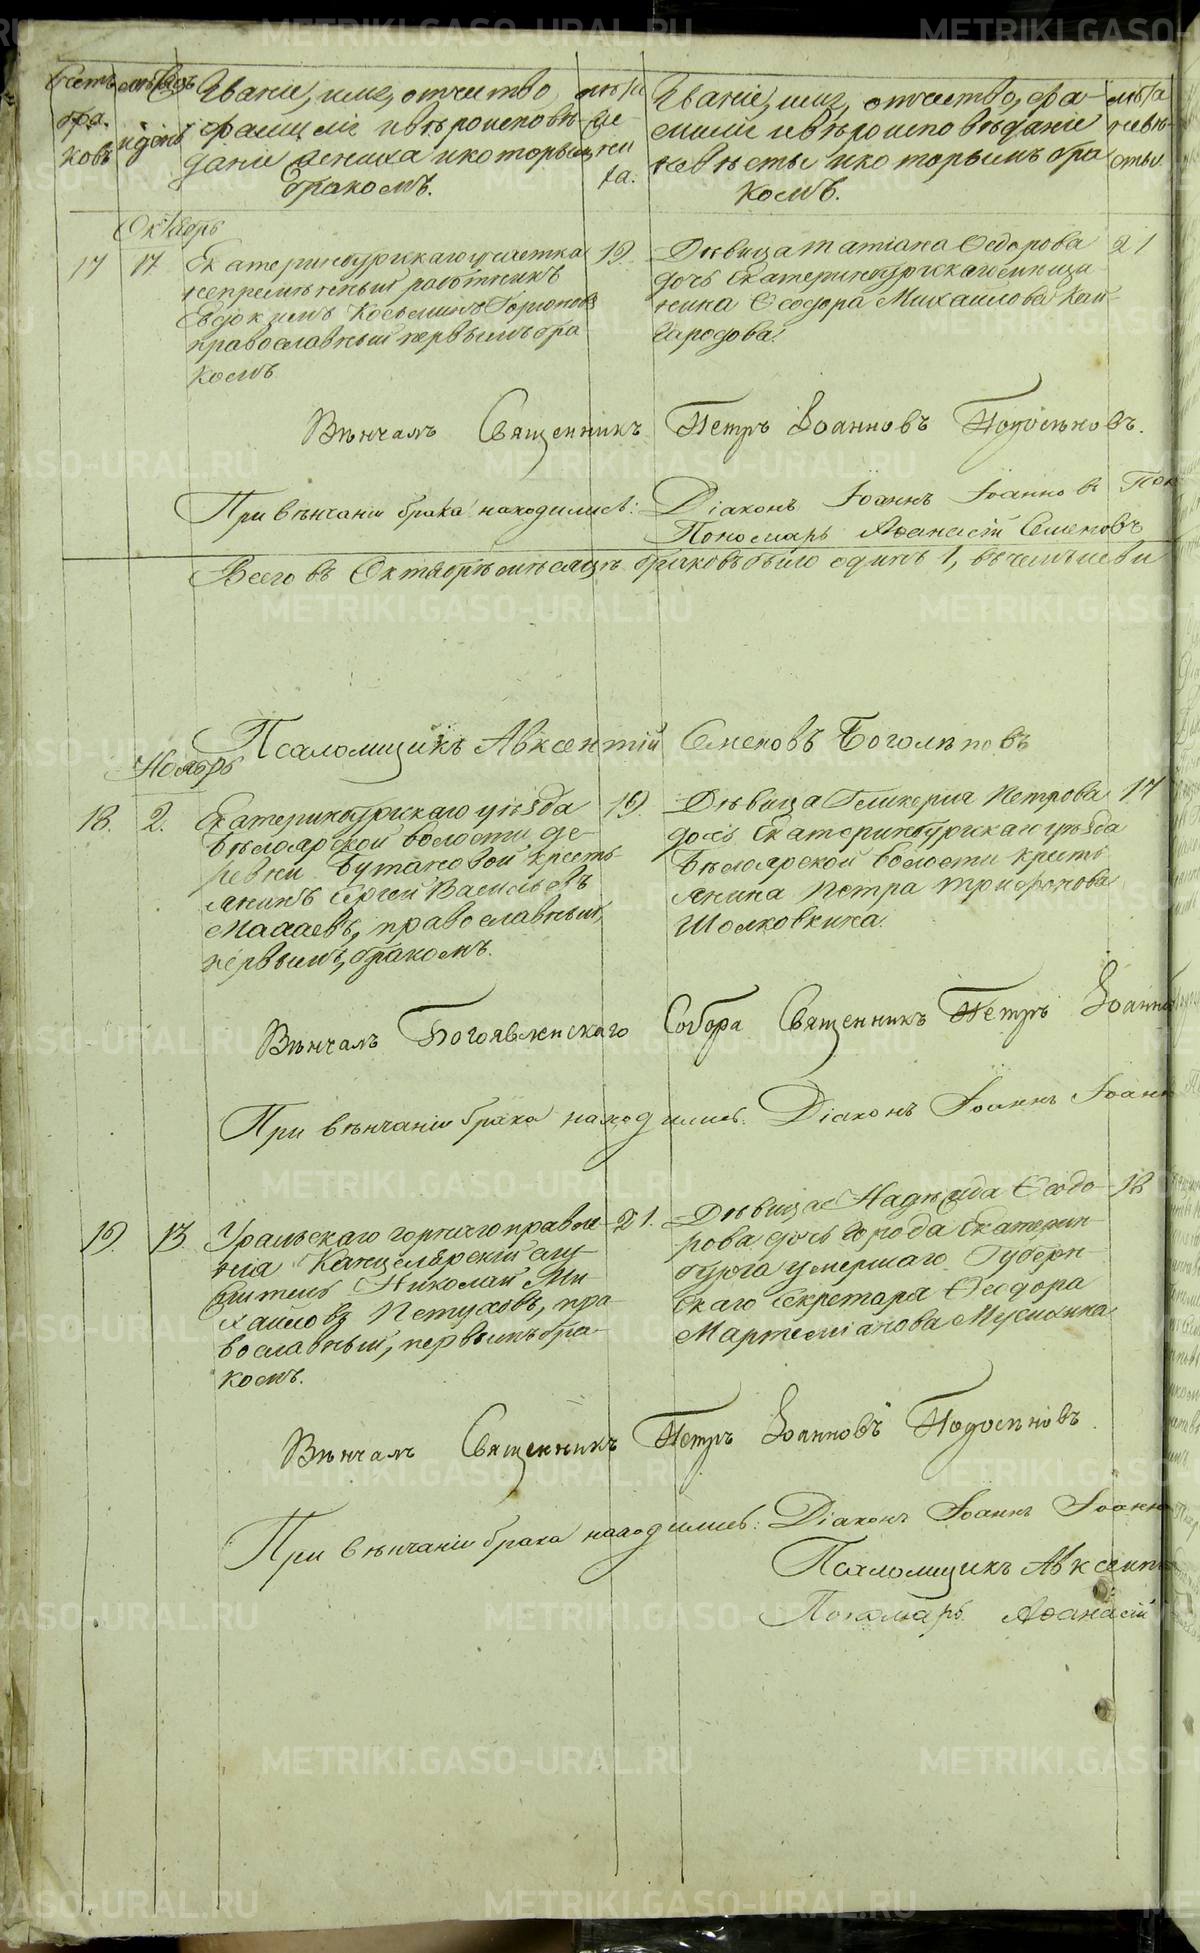 Счетъ бра-ковъ
мѣсяцъ и день
Званіе, имя, отчество,
фамилія и вѣроисповѣ-
даніе жениха и которымъ
бракомъ.
лѣта же-ни-ха.
Званіе, имя, отчество, фа-
милія и вѣроисповѣданіе
невѣсты и которымъ бра
комъ.
лѣта невѣ-сты.
Октябрь
17 17
Екатеринбургскаго участка
непремѣнный работникъ
Евдокимъ Козьминъ
православный первымъ бра
комъ
19.
Дѣвица Татіана Ѳедорова
дочь Екатеринбургскаго
Ѳеодора Михайлова Кай-
городова.
21
Вѣнчалъ Священникъ Петръ Іоанновъ Подосѣновъ.
При вѣнчаніи брака находились: Діаконъ Іоаннъ Іоанновъ
Пономарь Аѳанасій Семеновъ
Всего въ Октябрѣ мѣсяцѣ браковъ было одинъ 1, въ чемъ и сви
Псаломщикъ Авксентій Семеновъ Боголѣповъ
Ноябрь
18. 2.
Екатеринбургскаго уѣзда
Бѣлоярской волости де-
ревни Бутаковой кресть-
янинъ Сергей Васильевъ
православный,
первымъ, бракомъ.
19.
Дѣвица Гликерія Петрова
дочь Екатеринбургскаго уѣзда
Бѣлоярской волости кресть
янина Петра Трифонова
Шолковкина.
17
Вѣнчалъ Богоявленскаго Собора Священникъ Петръ Іоанно
При вѣнчаніи брака находились: Діаконъ Іоаннъ Іоанн
19. 13.
Уральскаго горнаго правле-
нія Канцелярскій слу-
житель Николай Ми-
хайловъ Петуховъ, пра-
вославный, первымъ бра-
комъ.
21.
Дѣвица Надежда Ѳеодо-
рова, дочь города Екатерин-
бурга умершаго Губерн-
скаго Секретаря Ѳеодора
Мартеміанова Мусихина
18
Вѣнчалъ Священникъ Петръ Іоанновъ Подосѣновъ.
При вѣнчаніи брака находились: Діаконъ Іоаннъ Іоанн
Псаломщикъ Авксент
Пономарь Аѳанасій
METRIKI.GASO-URAL.RU